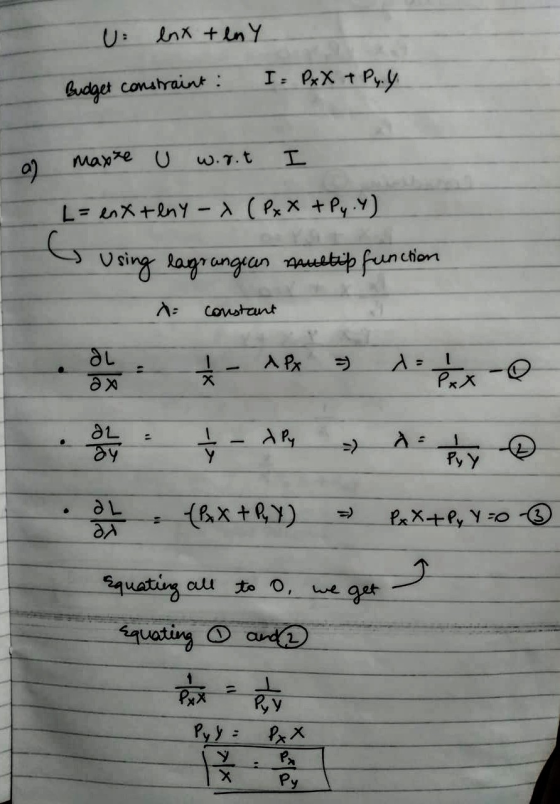 U = lnX + lnY
Budget constraint : I = PxX + Py.y
a) Maxze U w.r.t I
L = lnX + lnY - λ (PxX + Py.Y)
↳ Using lagrangian function
λ = constant
• ∂L/∂X = 1/X - λPx ⇒ λ = 1/PxX - ①
• ∂L/∂y = 1/Y - λPy ⇒ λ = 1/PyY - ②
• ∂L/∂λ = -(PxX + PyY) ⇒ PxX + PyY = 0 - ③
Equating all to 0, we get
Equating ① and ②
1/PxX = 1/PyY
Pyy = PxX
y/X = Px/Py